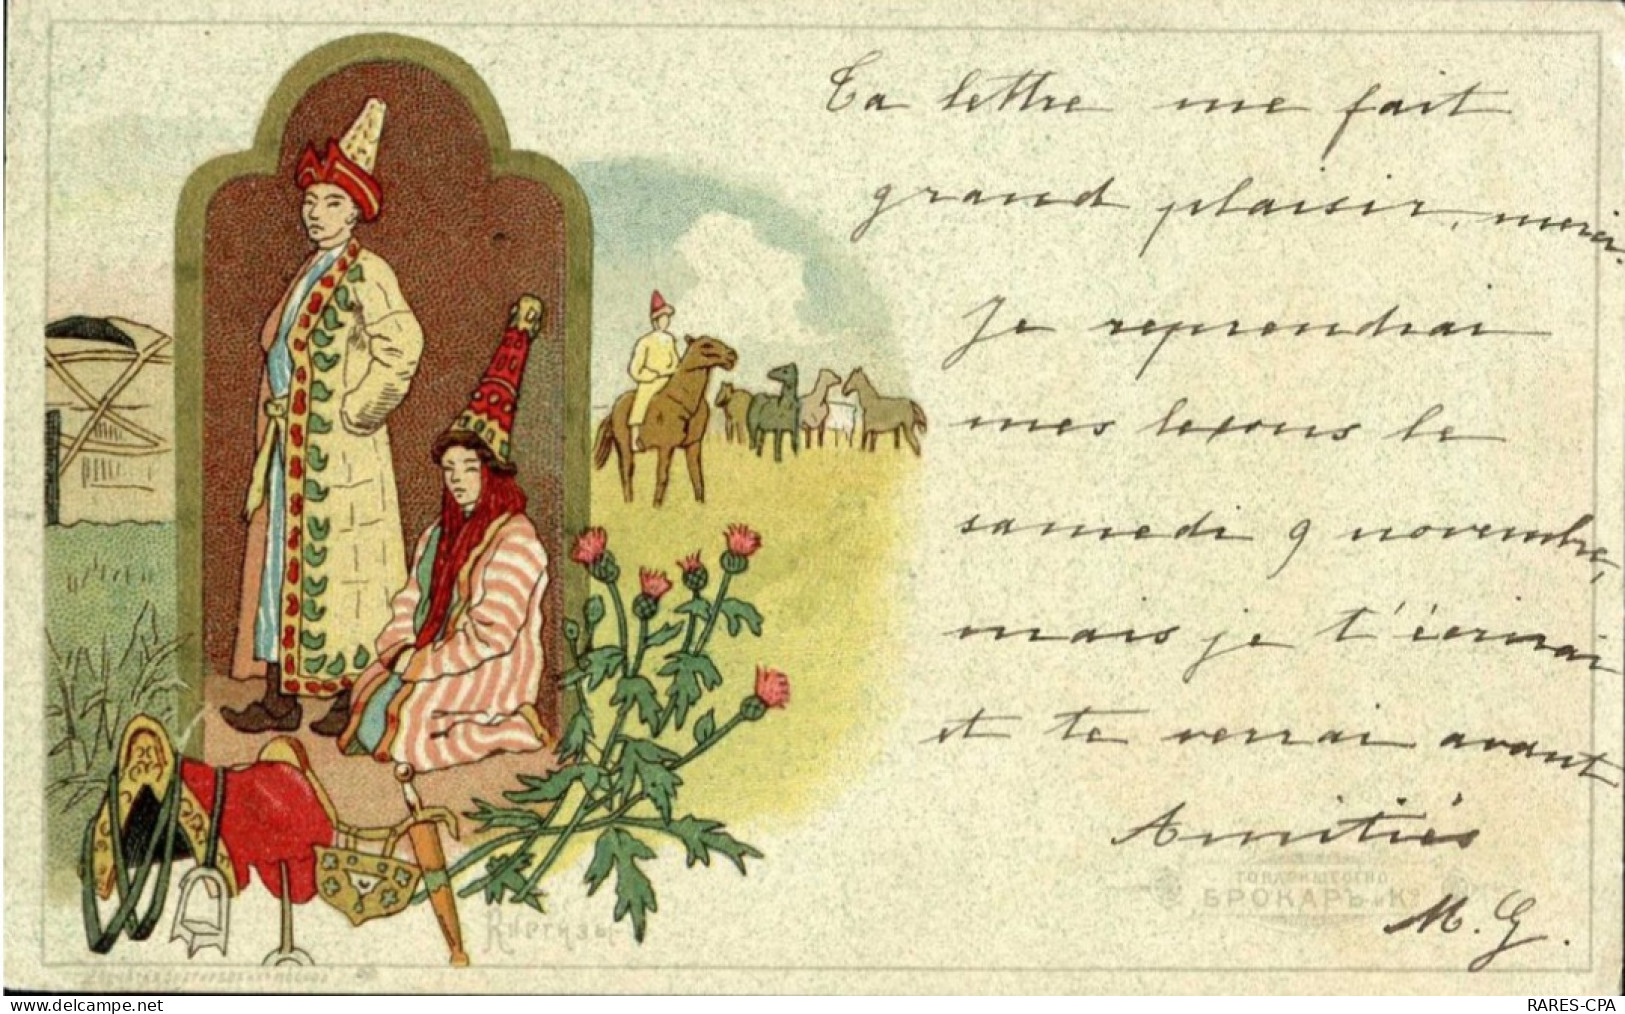 Ta lettre me fait
grand plaisir, merci.
Je reprendrai
mes leçons le
samedi 9 novembre,
mais je t'écrirai
et te verrai avant
Amitiés
M. G.
ТОВАРИЩЕСТВО
БРОКАРЪ и Ко
Киргизы
delcampe.net
RARES-CPA